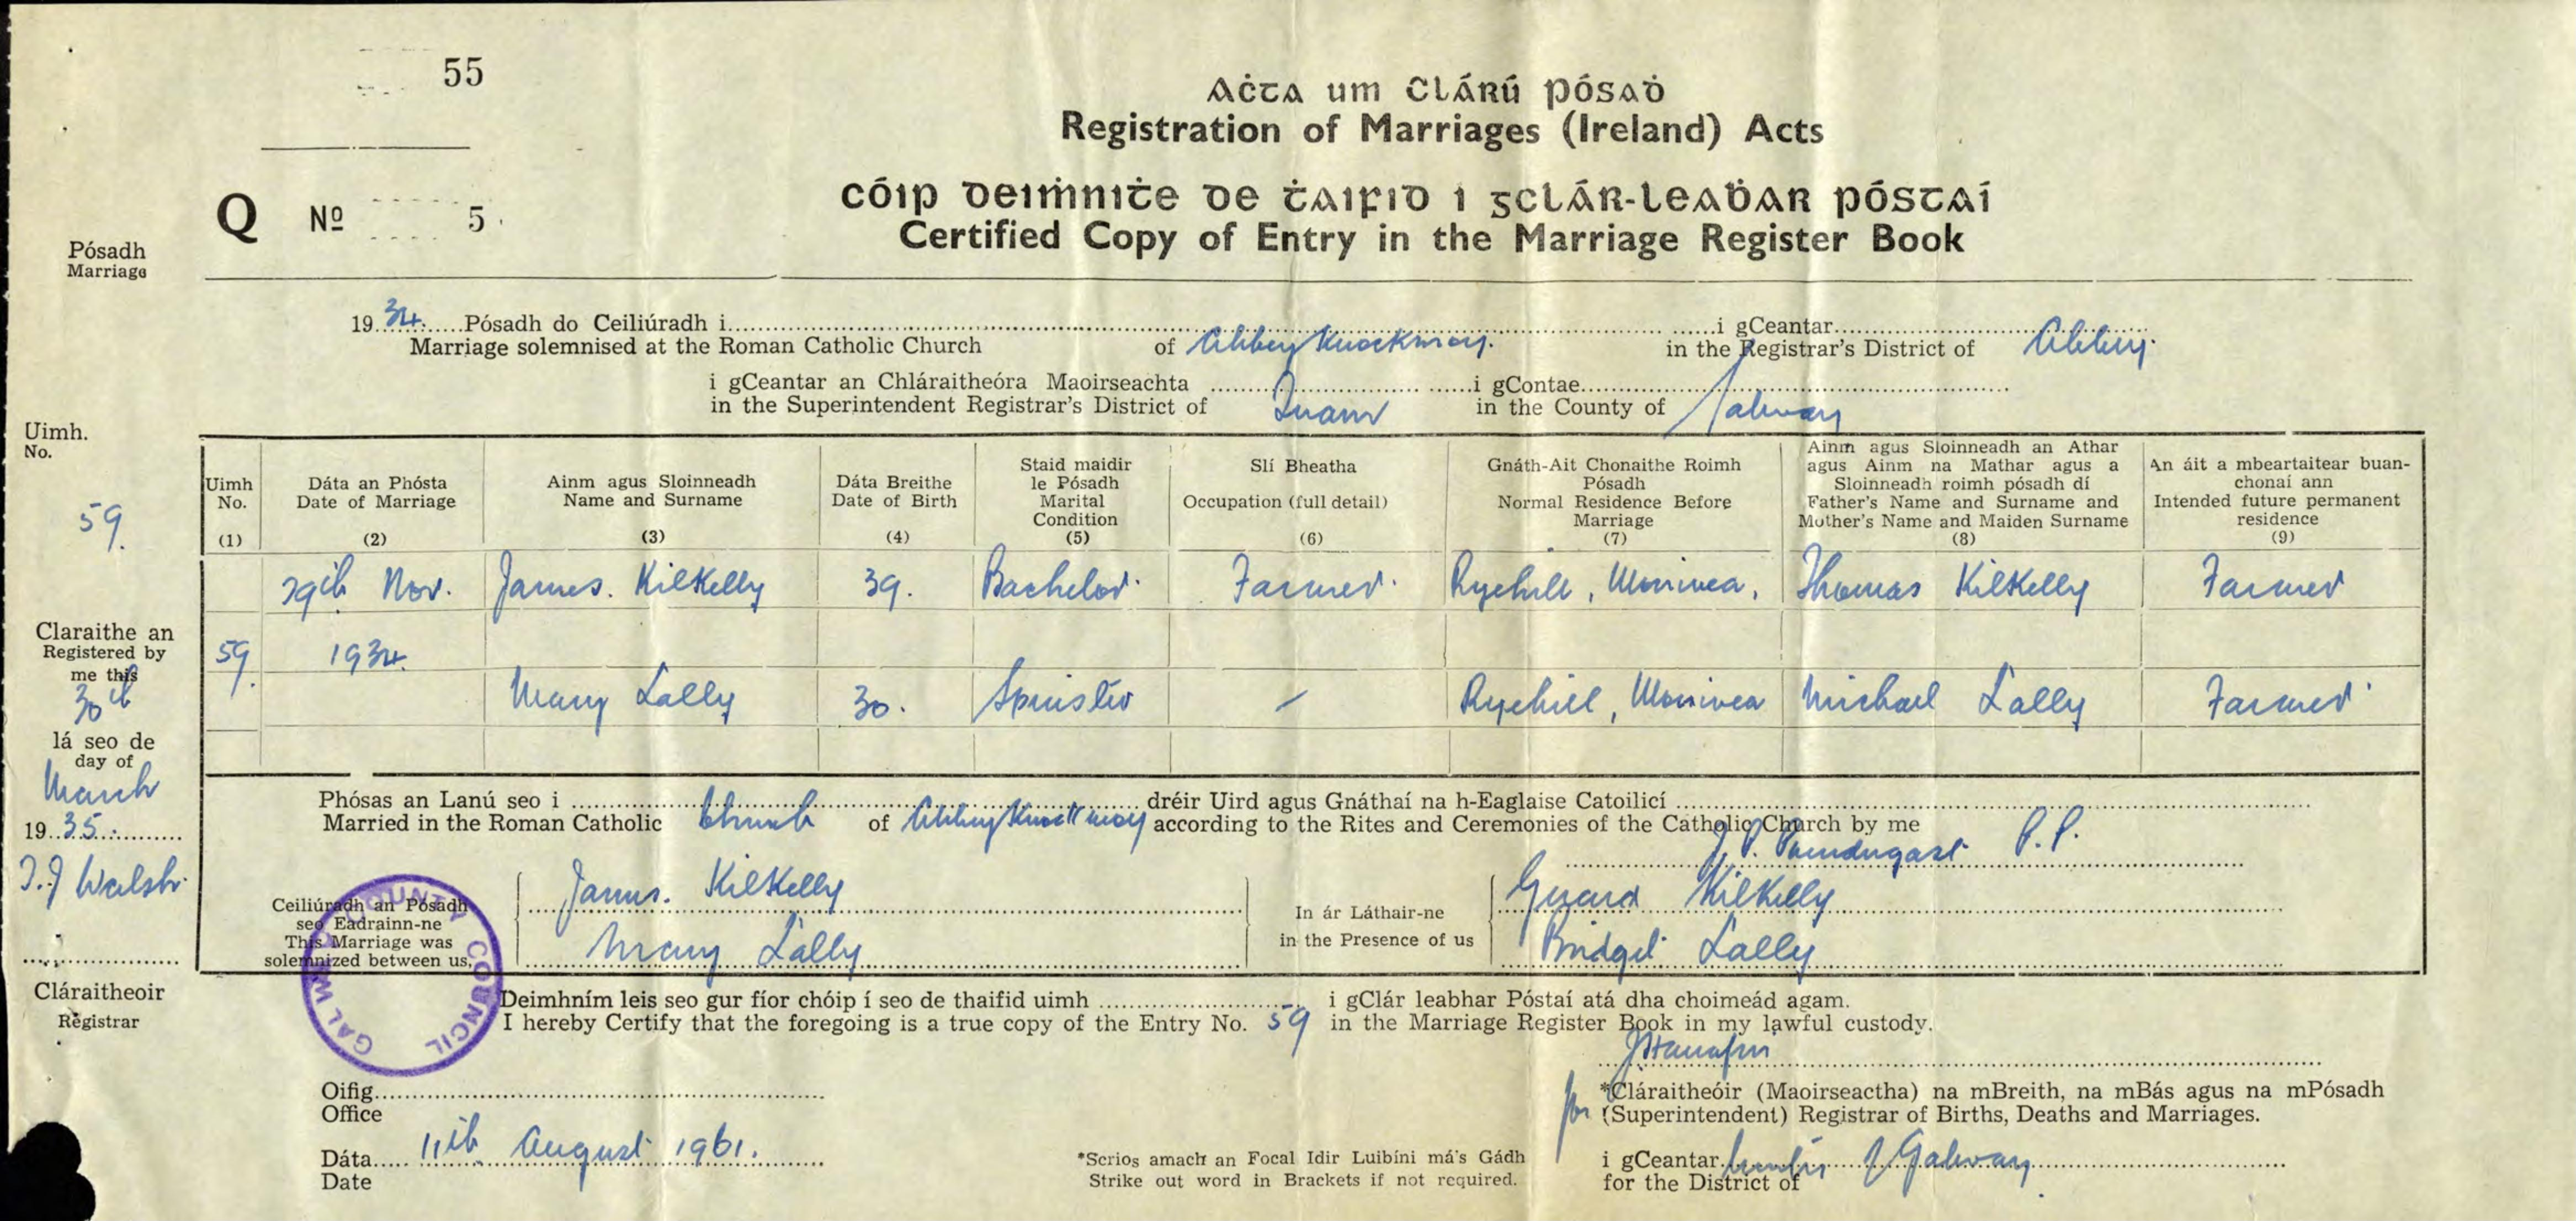 55
Aċta um Clárú Pósaḋ
Registration of Marriages (Ireland) Acts
Q Nº 5
Cóip Deiṁniṫe de Ṫaifid i gClár-Leaḃar Póstaí
Certified Copy of Entry in the Marriage Register Book
Pósadh
Marriage
19 34. Pósadh do Ceiliúradh i i gCeantar
Marriage solemnised at the Roman Catholic Church of Abbeyknockmoy. in the Registrar's District of Abbey.
i gCeantar an Chláraitheóra Maoirseachta i gContae
in the Superintendent Registrar's District of Tuam in the County of Galway
Uimh.
No.
59.
Uimh No. (1)
Dáta an Phósta Date of Marriage (2)
Ainm agus Sloinneadh Name and Surname (3)
Dáta Breithe Date of Birth (4)
Staid maidir le Pósadh Marital Condition (5)
Slí Bheatha Occupation (full detail) (6)
Gnáth-Ait Chonaithe Roimh Pósadh Normal Residence Before Marriage (7)
Ainm agus Sloinneadh an Athar agus Ainm na Mathar agus a Sloinneadh roimh pósadh dí Father's Name and Surname and Mother's Name and Maiden Surname (8)
An áit a mbeartaitear buan-chonaí ann Intended future permanent residence (9)
29th Nov. James. Kilkelly 39. Bachelor. Farmer. Ryehill, Monivea, Thomas Kilkelly Farmer
59. 1934.
Mary Lally 30. Spinster Ryehill, Monivea Michael Lally Farmer
Claraithe an
Registered by
me this
30th
lá seo de
day of
March
19 35.
T.J Walsh.
Cláraitheoir
Registrar
Phósas an Lanú seo i dréir Uird agus Gnáthaí na h-Eaglaise Catoilicí
Married in the Roman Catholic Church of Abbeyknockmoy according to the Rites and Ceremonies of the Catholic Church by me
J. P. P.P.
Ceiliúradh an Pósadh
seo Eadrainn-ne
This Marriage was
solemnized between us,
James. Kilkelly
Mary Lally
In ár Láthair-ne
in the Presence of us
Gerard Kilkelly
Bridget Lally
GALWAY COUNTY COUNCIL
Deimhním leis seo gur fíor chóip í seo de thaifid uimh i gClár leabhar Póstaí atá dha choimeád agam.
I hereby Certify that the foregoing is a true copy of the Entry No. 59 in the Marriage Register Book in my lawful custody.
Oifig
Office
*Cláraitheóir (Maoirseactha) na mBreith, na mBás agus na mPósadh
for (Superintendent) Registrar of Births, Deaths and Marriages.
Dáta 11th August 1961.
Date
*Scrios amach an Focal Idir Luibíni má's Gádh
Strike out word in Brackets if not required.
i gCeantar County of Galway
for the District of